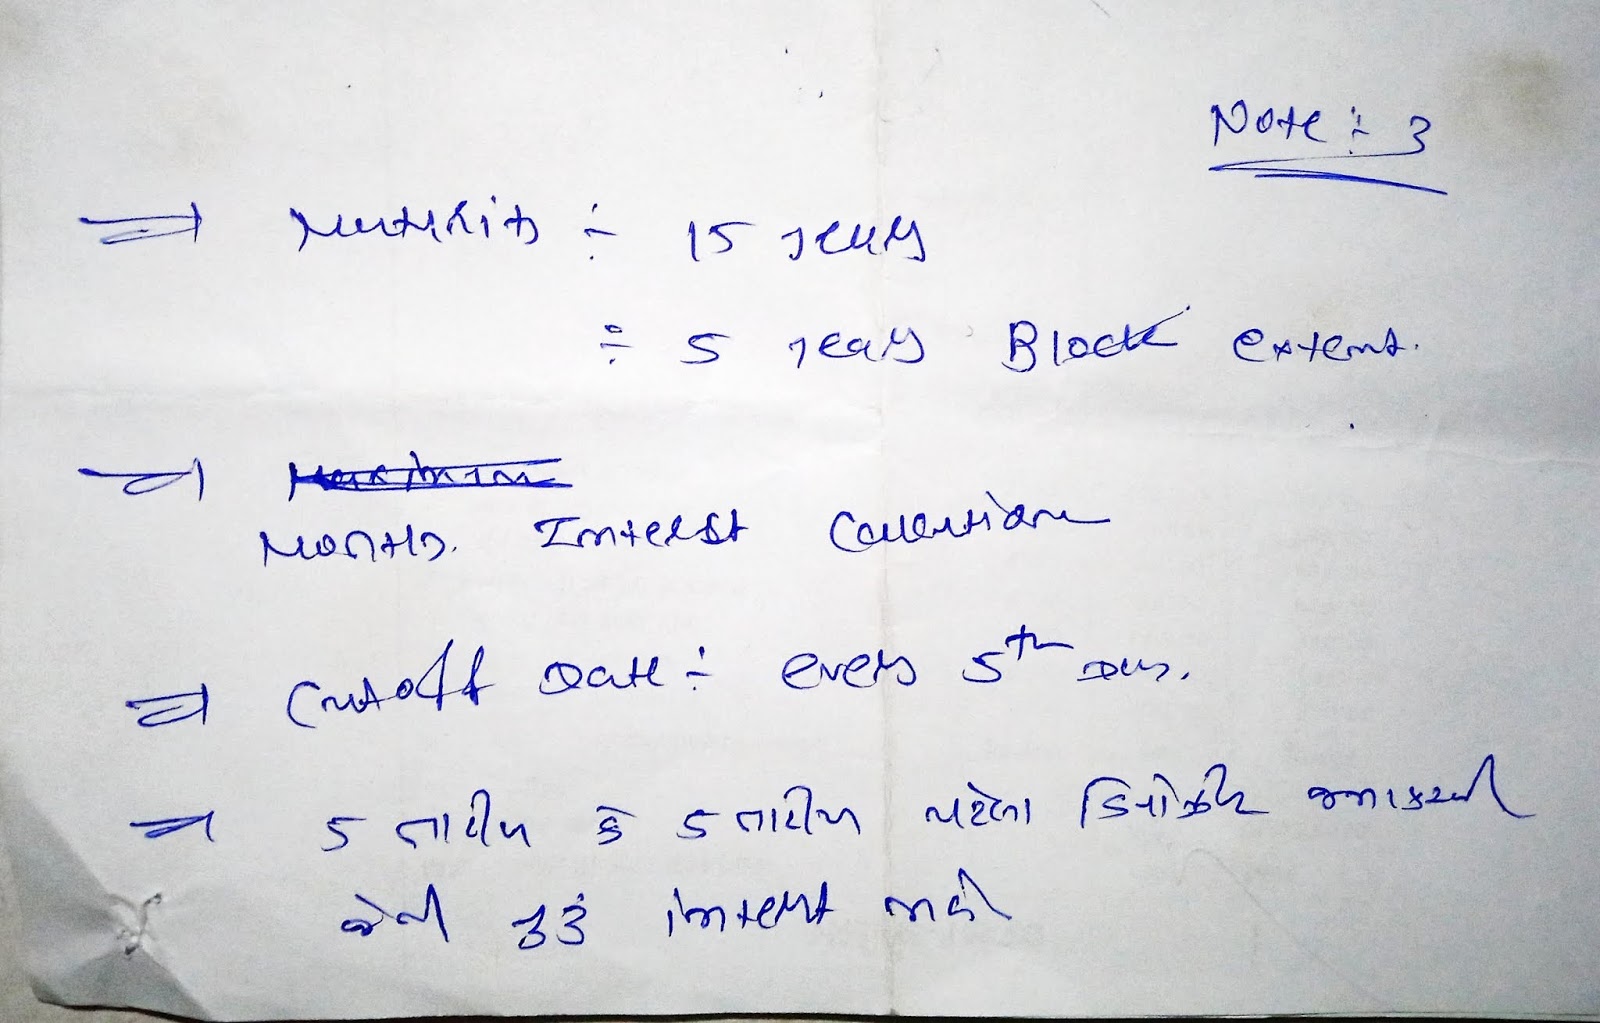 Note :- 3
⇒ Maturity :- 15 years
:- 5 years Block extent.
⇒
Monthly. Interest Caluation
⇒ Cutoff Date :- every 5th day.
⇒ 5 તારીખ કે 5 તારીખ પહેલા ડિપોઝીટ જમા કરાવી
જેથી પુરું interest મળે